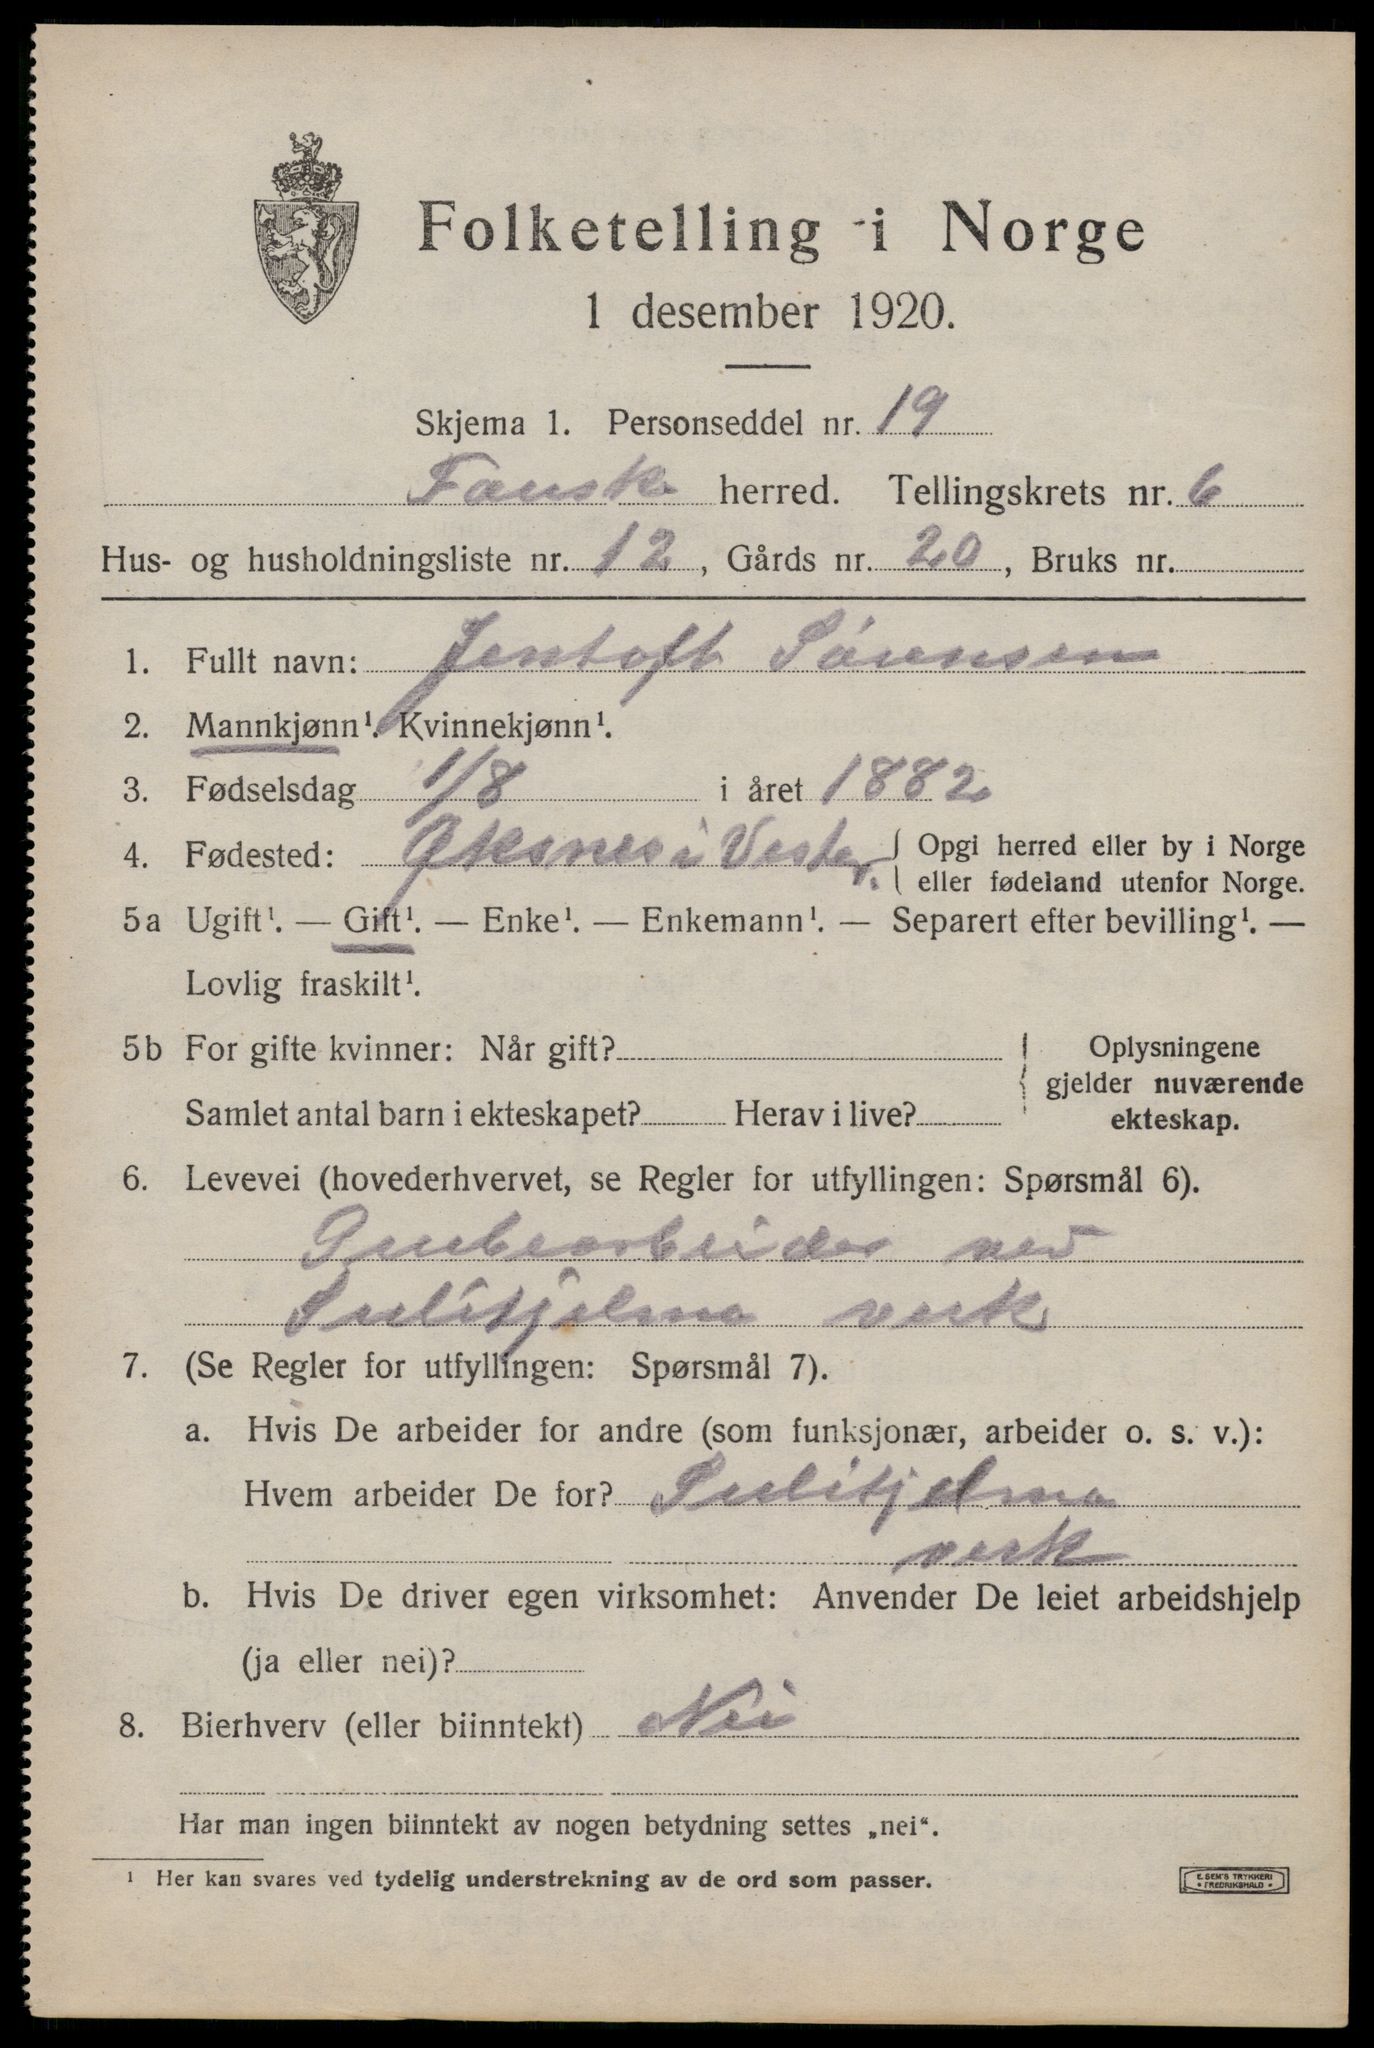 Folketelling i Norge
1 desember 1920.
Skjema 1. Personseddel nr. 19
Fauske herred. Tellingskrets nr. 6
Hus- og husholdningsliste nr. 12, Gårds nr. 20, Bruks nr.
1. Fullt navn: Jentoft Sørensen
2. Mannkjønn¹. Kvinnekjønn¹.
3. Fødselsdag 1/8 i året 1882
4. Fødested: Øksnes i Vester. { Opgi herred eller by i Norge
eller fødeland utenfor Norge.
5a Ugift¹. — Gift¹. — Enke¹. — Enkemann¹. — Separert efter bevilling¹. —
Lovlig fraskilt¹.
5b For gifte kvinner: Når gift?
Samlet antal barn i ekteskapet? Herav i live?
Oplysningene
gjelder nuværende
ekteskap.
6. Levevei (hovederhvervet, se Regler for utfyllingen: Spørsmål 6).
Grubearbeider ved
Sulitjelma verk
7. (Se Regler for utfyllingen: Spørsmål 7).
a. Hvis De arbeider for andre (som funksjonær, arbeider o. s. v.):
Hvem arbeider De for? Sulitjelma
verk
b. Hvis De driver egen virksomhet: Anvender De leiet arbeidshjelp
(ja eller nei)?
8. Bierhverv (eller biinntekt) Nei
Har man ingen biinntekt av nogen betydning settes „nei“.
¹ Her kan svares ved tydelig understrekning av de ord som passer.
E. SEM'S TRYKKERI
• FREDRIKSHALD •